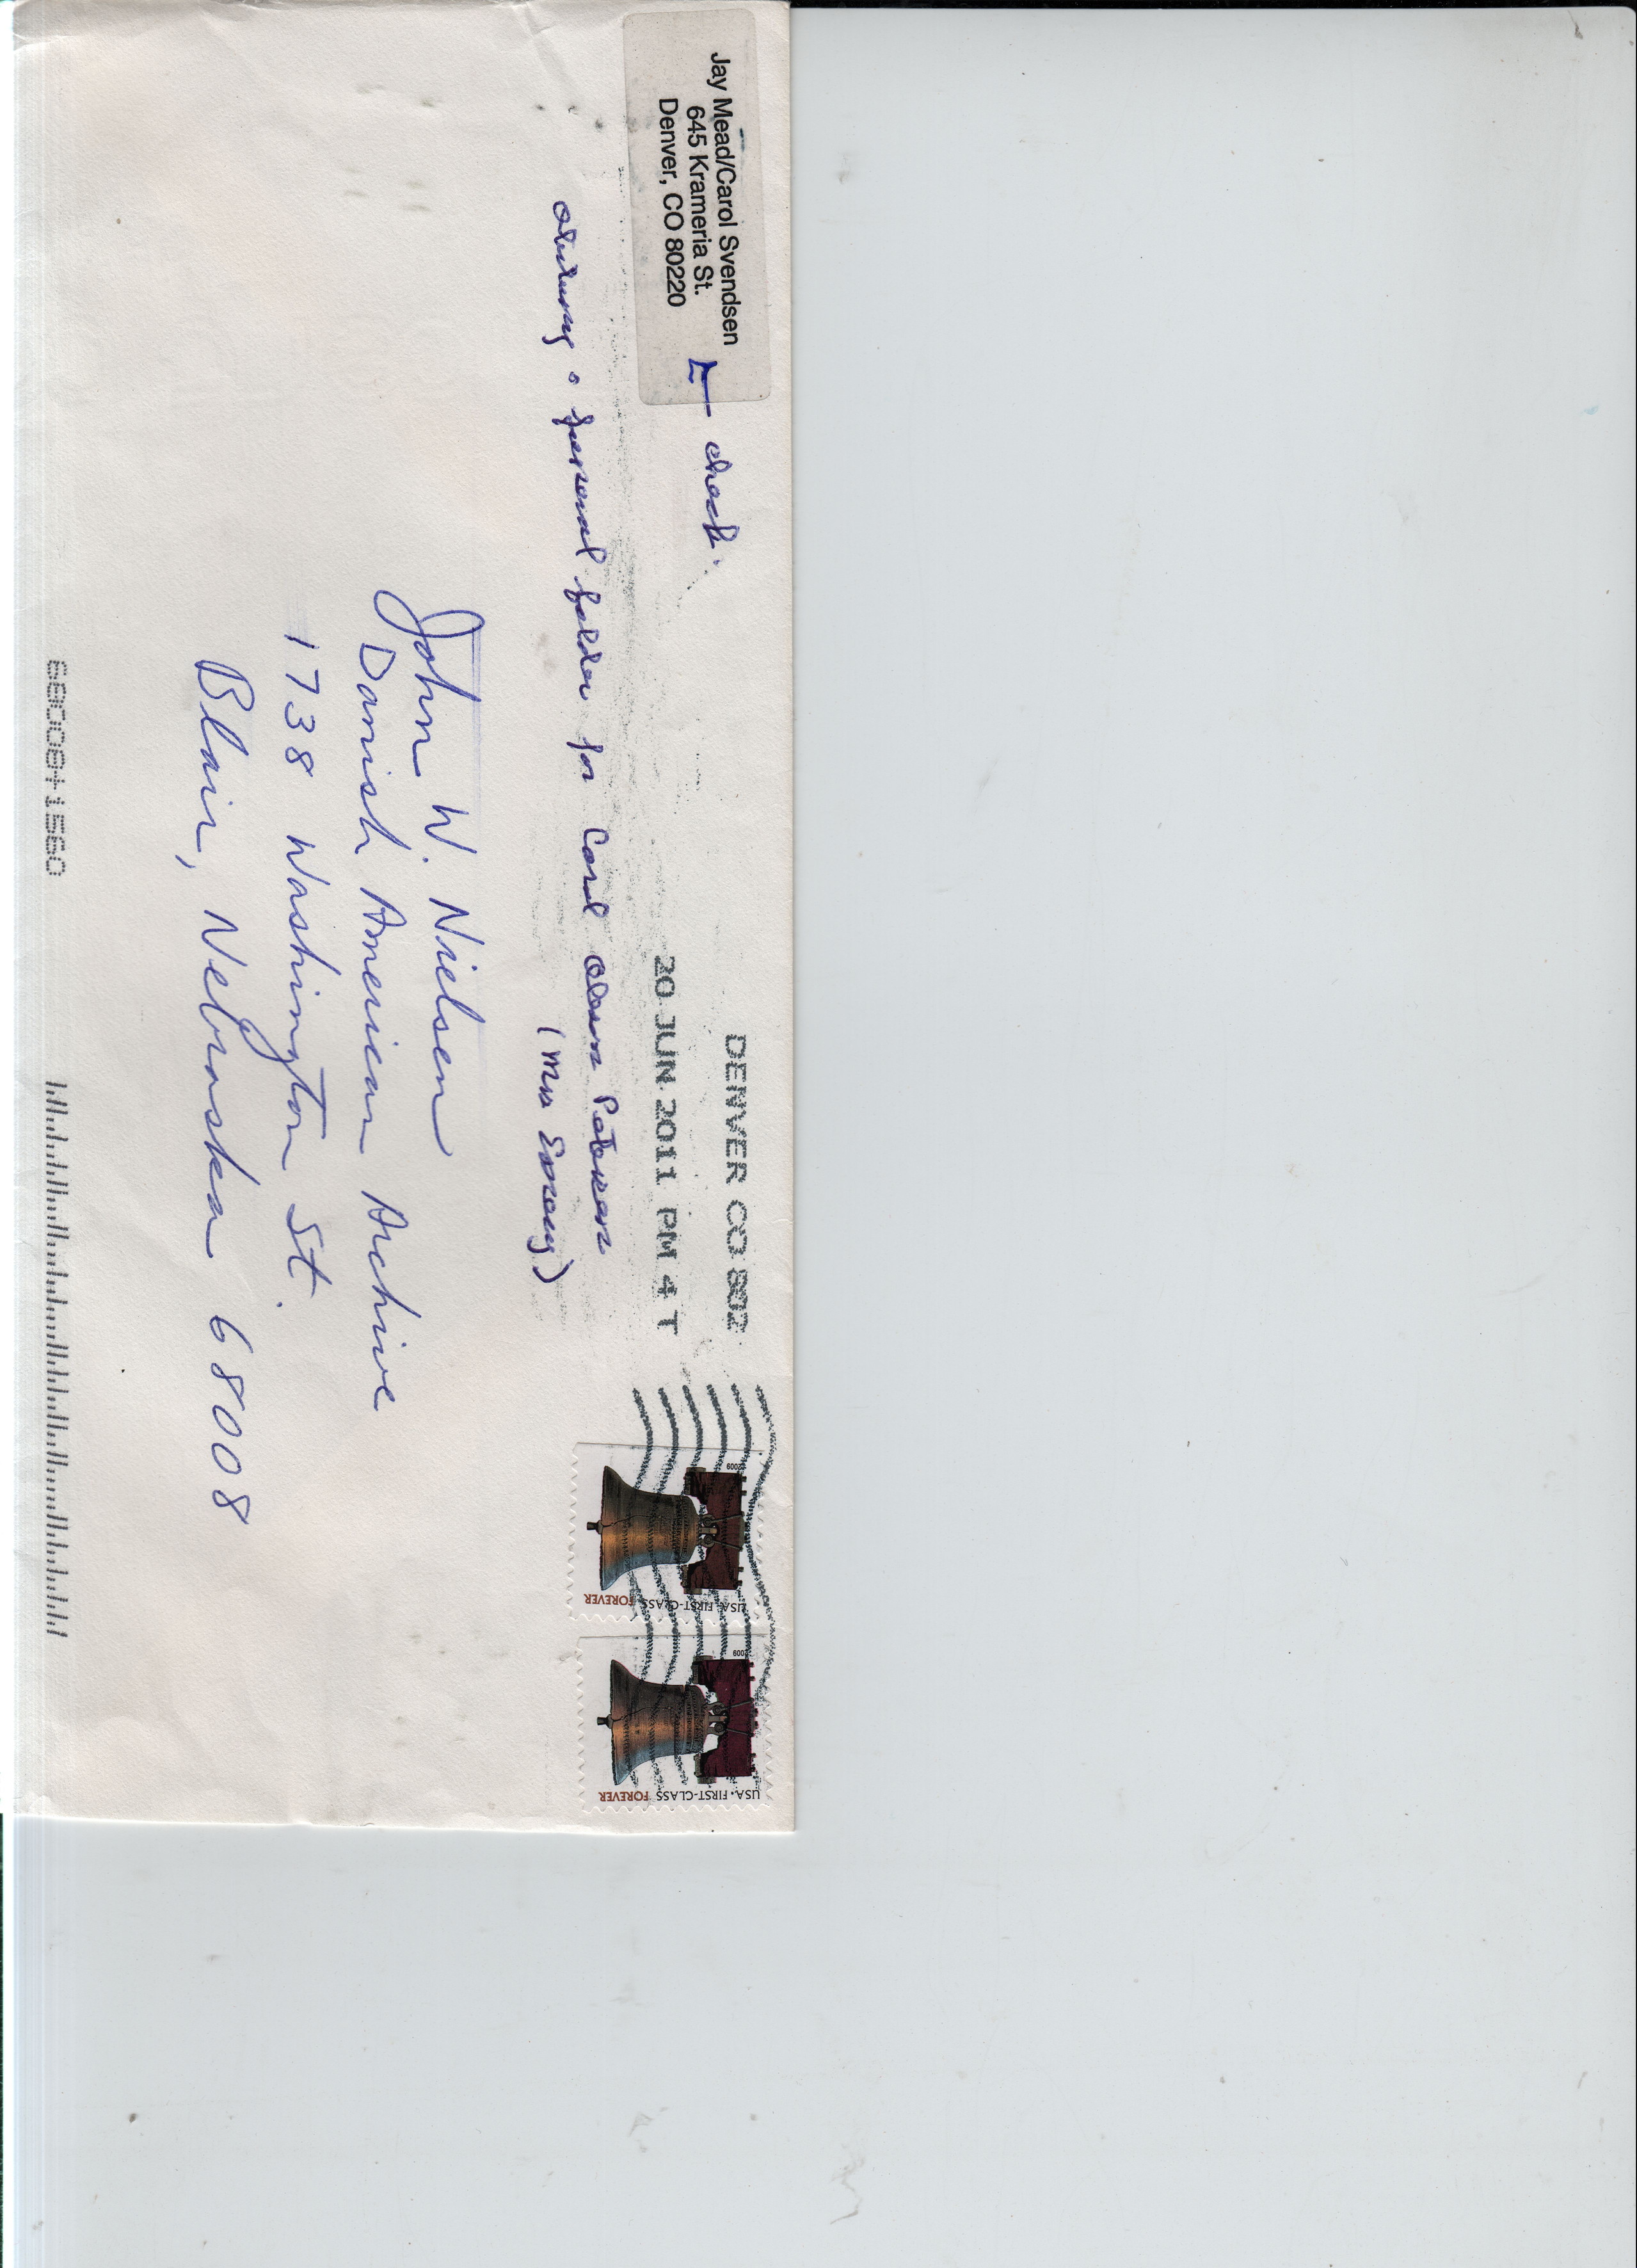 Jay Mead/Carol Svendsen
645 Krameria St.
Denver, CO 80220
← check:
obituary & funeral folder for Carol Olsen Petersen
(Mrs Emory)
DENVER CO 802
20 JUN 2011 PM 4 T
2009
USA • FIRST-CLASS FOREVER
2009
USA • FIRST-CLASS FOREVER
John W. Nielsen
Danish American Archive
1738 Washington St.
Blair, Nebraska 68008
68008+1560